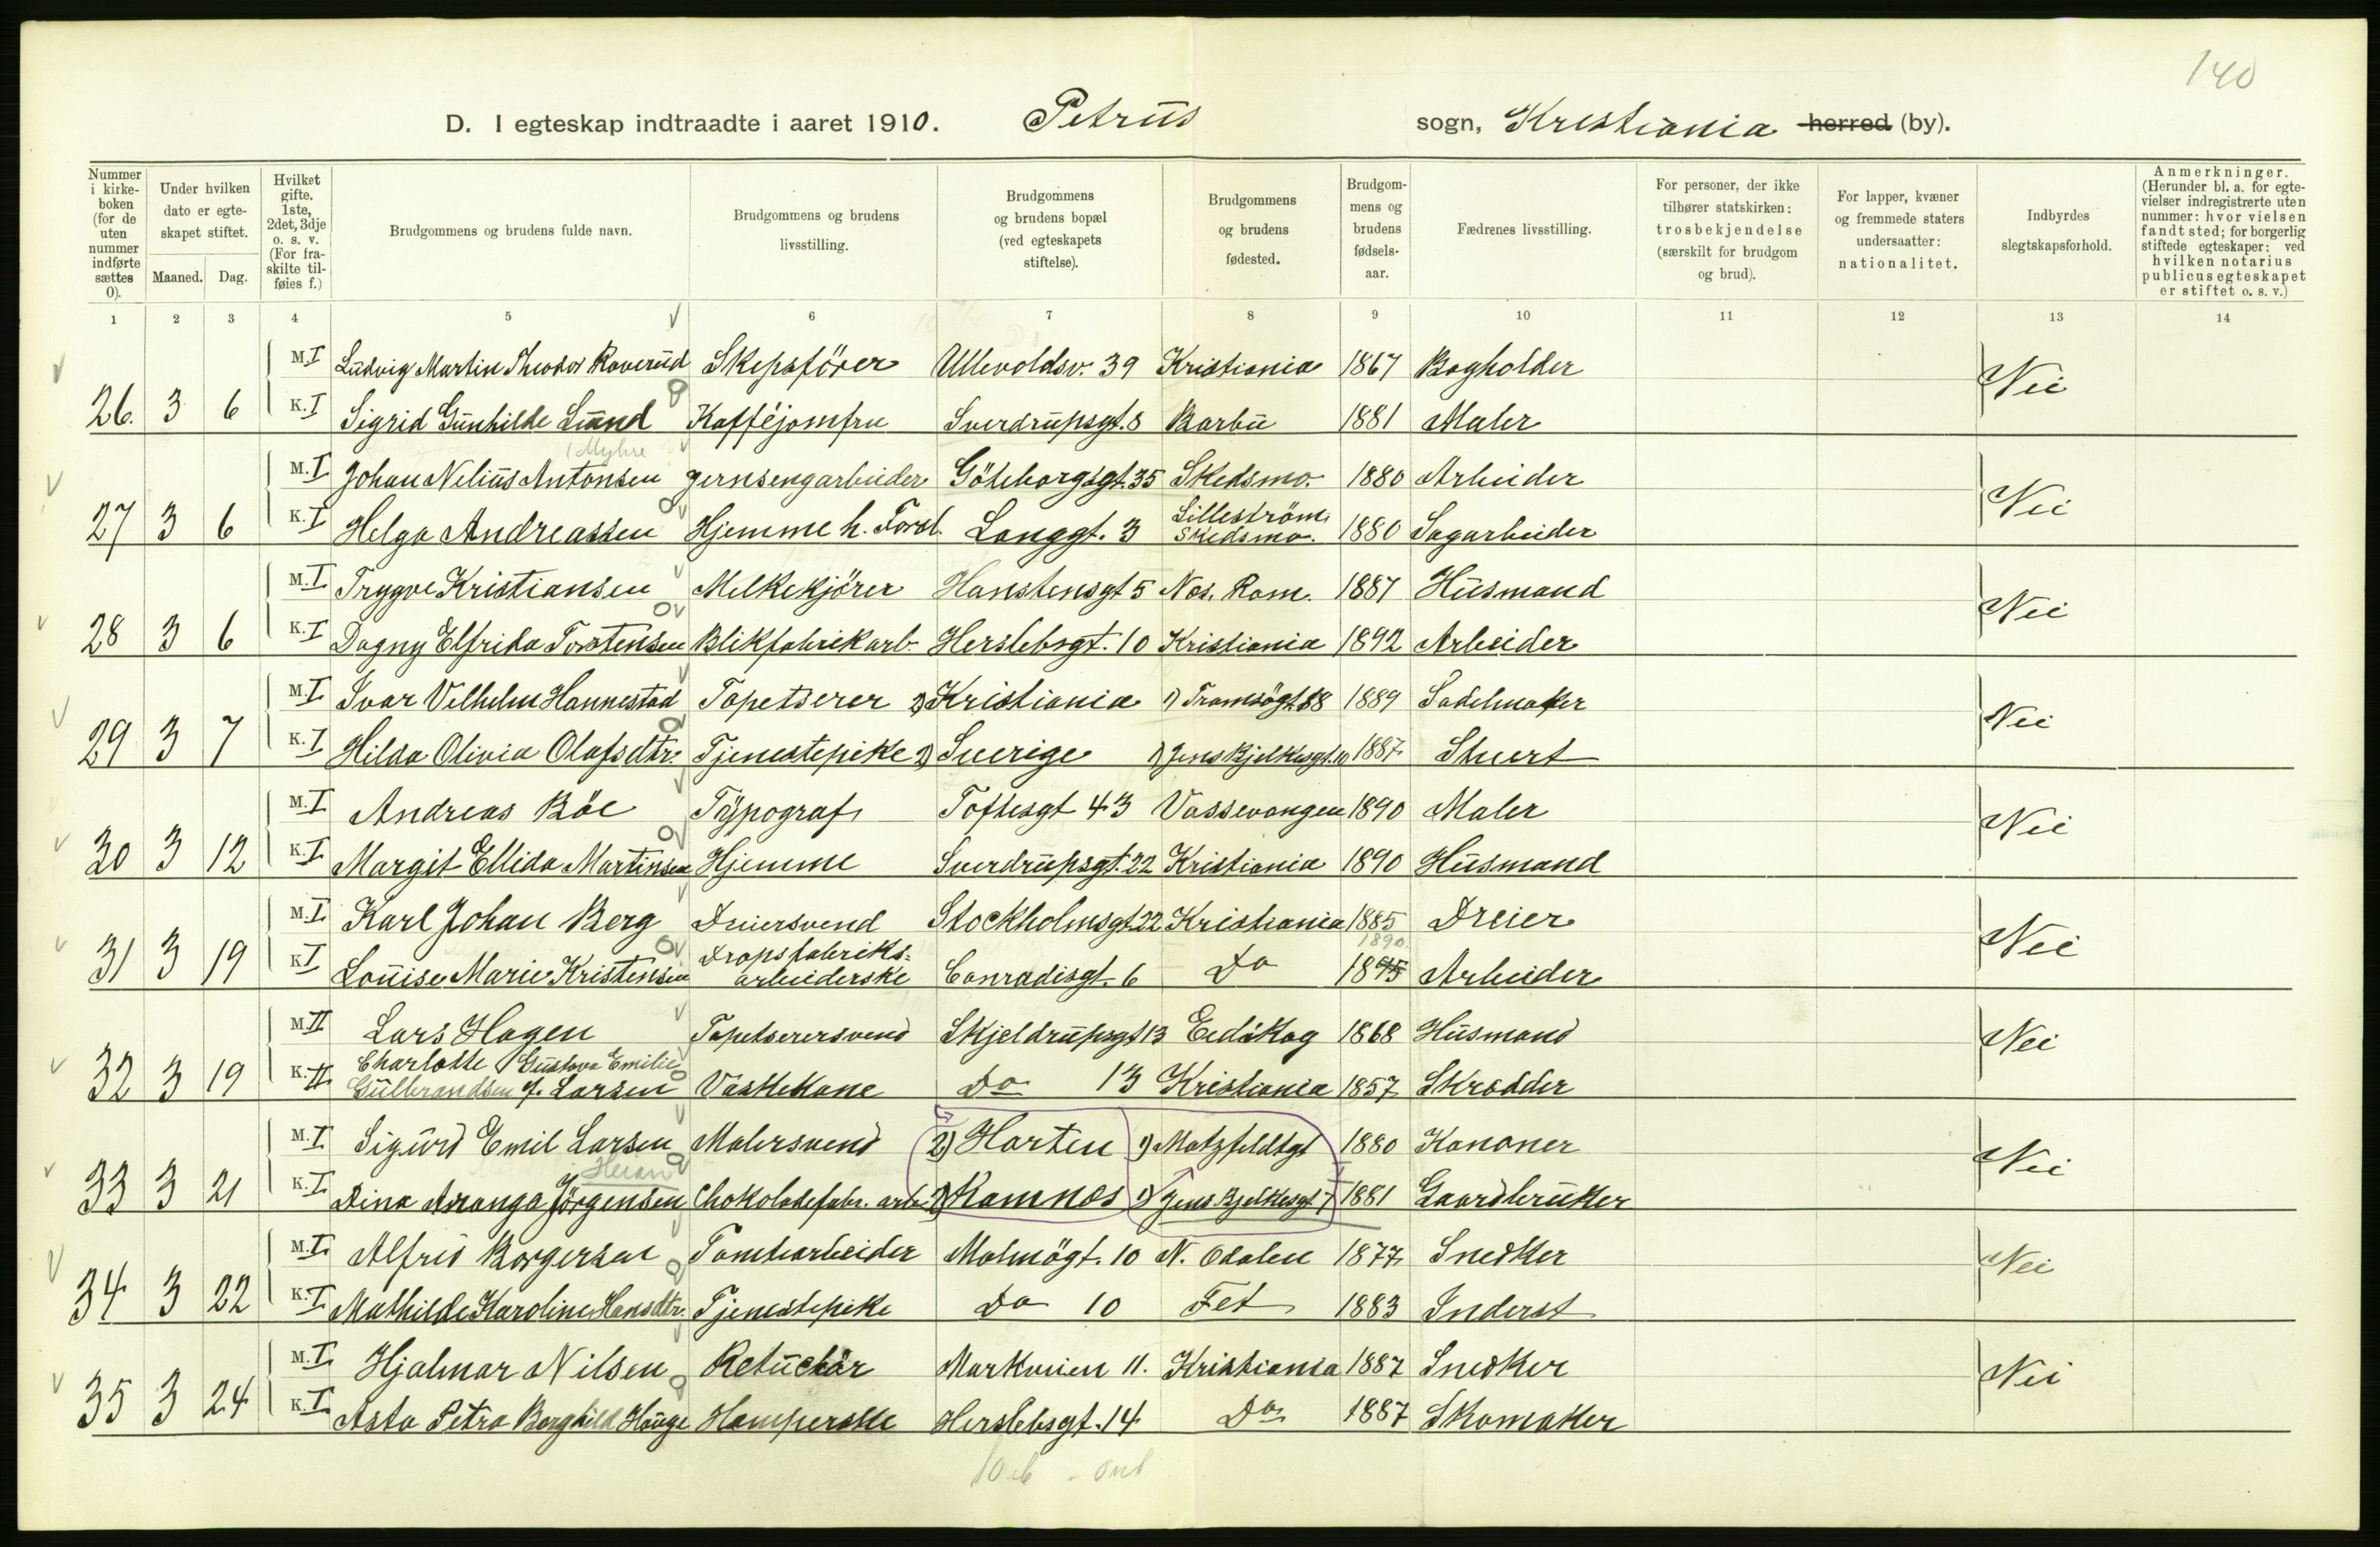 140
D. I egteskap indtraadte i aaret 1910. Petrus sogn, Kristiania herred (by).
Nummer i kirkeboken (for de uten nummer indførte sættes 0).
Under hvilken dato er egteskapet stiftet.
Maaned. Dag.
Hvilket gifte. 1ste, 2det, 3dje o. s. v. (For fraskilte tilføies f.)
Brudgommens og brudens fulde navn.
Brudgommens og brudens livsstilling.
Brudgommens og brudens bopæl (ved egteskapets stiftelse).
Brudgommens og brudens fødested.
Brudgommens og brudens fødselsaar.
Fædrenes livsstilling.
For personer, der ikke tilhører statskirken: trosbekjendelse (særskilt for brudgom og brud).
For lapper, kvæner og fremmede staters undersaatter: nationalitet.
Indbyrdes slegtskapsforhold.
Anmerkninger. (Herunder bl. a. for egtevielser indregistrerte uten nummer: hvor vielsen fandt sted; for borgerlig stiftede egteskaper: ved hvilken notarius publicus egteskapet er stiftet o. s. v.)
1 2 3 4 5 6 7 8 9 10 11 12 13 14
M. I Ludvig Martin Theodor Roverud Skepsförer Ullevoldsv. 39 Kristiania 1867 Bogholder
26. 3 6 K. I Sigrid Gunhilde Lund Kafféjomfru Sverdrupsgt. 8 Barbu 1881 Maler Nei
(Myhre
M. I Johan Nelius Antonsen Jernsengarbeider Göteborgsgt. 35 Skedsmo. 1880 Arbeider
27 3 6 K. I Helga Andreassen Hjemme h. Foræl. Langgt. 3 Lilleström Skedsmo. 1880 Sagarbeider Nei
M. I Trygve Kristiansen Melkekjörer Hanstensgt 5 Nes. Rom. 1887 Husmand
28 3 6 K. I Dagny Elfrida Torstensen Blikfabrikarb. Herslebsgt. 10 Kristiania 1892 Arbeider Nei
M. I Ivar Vilhelm Hannestad Tapetserer 2) Kristiania 1) Tromsögt. 88 1889 Sadelmaker
29 3 7 K. I Hilda Olivia Olafsdtr. Tjenestepike 2) Sverige 1) Jens Bjelkesgt. 10 1887 Stuert Nei
M. I Andreas Böe Typograf Toftesgt 43 Vossevangen 1890 Maler
30 3 12 K. I Margit Ellida Martinsen Hjemme Sverdrupsgt. 22 Kristiania 1890 Husmand Nei
M. I Karl Johan Berg Dreiersvend Stockholmsgt. 22 Kristiania 1885 Dreier
1890
31 3 19 K. I Louise Marie Kristensen Dropsfabriks-arbeiderske Conradisgt. 6 Do 1895 Arbeider Nei
M. II Lars Hagen Tapetserersvend Skjeldrupsgt 13 Eidskog 1868 Husmand
32 3 19 K. II Charlotte Gustava Emilie Gulbrandsen f. Larsen Vaskekone Do 13 Kristiania 1857 Skrædder Nei
M. I Sigurd Emil Larsen Malersvend 2) Horten 1) Motzfeldtsgt 1880 Kanoner
33 3 21 K. I Dina Aranga Jörgensen Chokoladefabr. arb. 2) Ramnes 1) Jens Bjelkesgt. 7 1881 Gaardbruker Nei
M. I Alfred Borgersen Tomtearbeider Malmögt. 10 N. Odalen 1877 Snedker
34 3 22 K. I Mathilde Karoline Hansdtr. Tjenestepike Do 10 Fet 1883 Inderst Nei
M. I Hjalmar Nilsen Retuchör Markveien 11. Kristiania 1887 Snedker
35 3 24 K. I Asta Petra Borghild Hauge Hamperske Herslebsgt. 14 Do 1887 Skomaker Nei